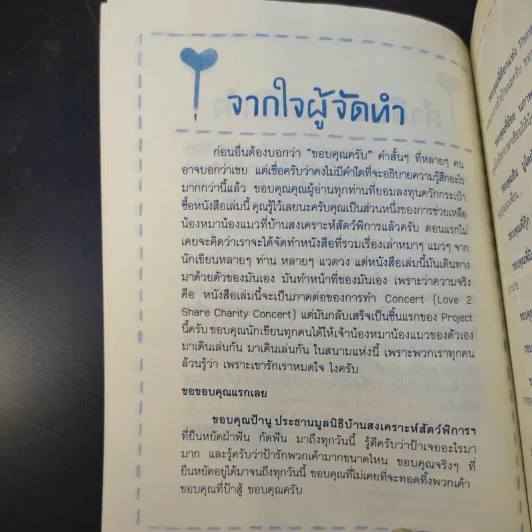 จากใจผู้จัดทำ
ก่อนอื่นต้องบอกว่า "ขอบคุณครับ" คำสั้นๆ ที่หลายๆ คน
อาจบอกว่าเชย แต่เชื่อเถอะครับว่าคงไม่มีคำใดที่จะอธิบายความรู้สึกอะไร
มากกว่านี้แล้ว ขอบคุณคุณผู้อ่านทุกท่านที่ยอมลงทุนควักกระเป๋า
ซื้อหนังสือเล่มนี้ คุณรู้ไว้เลยนะครับคุณเป็นส่วนหนึ่งของการช่วยเหลือ
น้องหมาน้องแมวที่บ้านสงเคราะห์สัตว์พิการแล้วครับ ตอนแรกไม่
เคยจะคิดว่าเราจะได้จัดทำหนังสือที่รวมเรื่องเล่าหมาๆ แมวๆ จาก
นักเขียนหลายๆ ท่าน หลายๆ แวดวง แต่หนังสือเล่มนี้มันเดินทาง
มาด้วยตัวของมันเอง มันทำหน้าที่ของมันเอง เพราะว่าความจริง
คือ หนังสือเล่มนี้จะเป็นภาคต่อของการทำ Concert (Love 2
Share Charity Concert) แต่มันกลับเสร็จเป็นชิ้นแรกของ Project
นี้ครับ ขอบคุณนักเขียนทุกคนได้ให้เจ้าน้องหมาน้องแมวของตัวเอง
มาเดินเล่นกัน มาเดินเล่นกัน ในสนามแห่งนี้ เพราะพวกเราทุกคน
ล้วนรู้ว่า เพราะเขารักเราหมดใจ ไงครับ
ขอขอบคุณแรกเลย
ขอบคุณป้านู ประธานมูลนิธิบ้านสงเคราะห์สัตว์พิการฯ
ที่ยืนหยัดฝ่าฟัน กัดฟัน มาถึงทุกวันนี้ รู้ดีครับว่าป้าเจออะไรมา
มาก และรู้ครับว่าป้ารักพวกเค้ามากขนาดไหน ขอบคุณจริงๆ ที่
ยืนหยัดอยู่ได้มาจนถึงทุกวันนี้ ขอบคุณที่ไม่เคยที่จะทอดทิ้งพวกเค้า
ขอบคุณที่ป้าสู้ ขอบคุณครับ